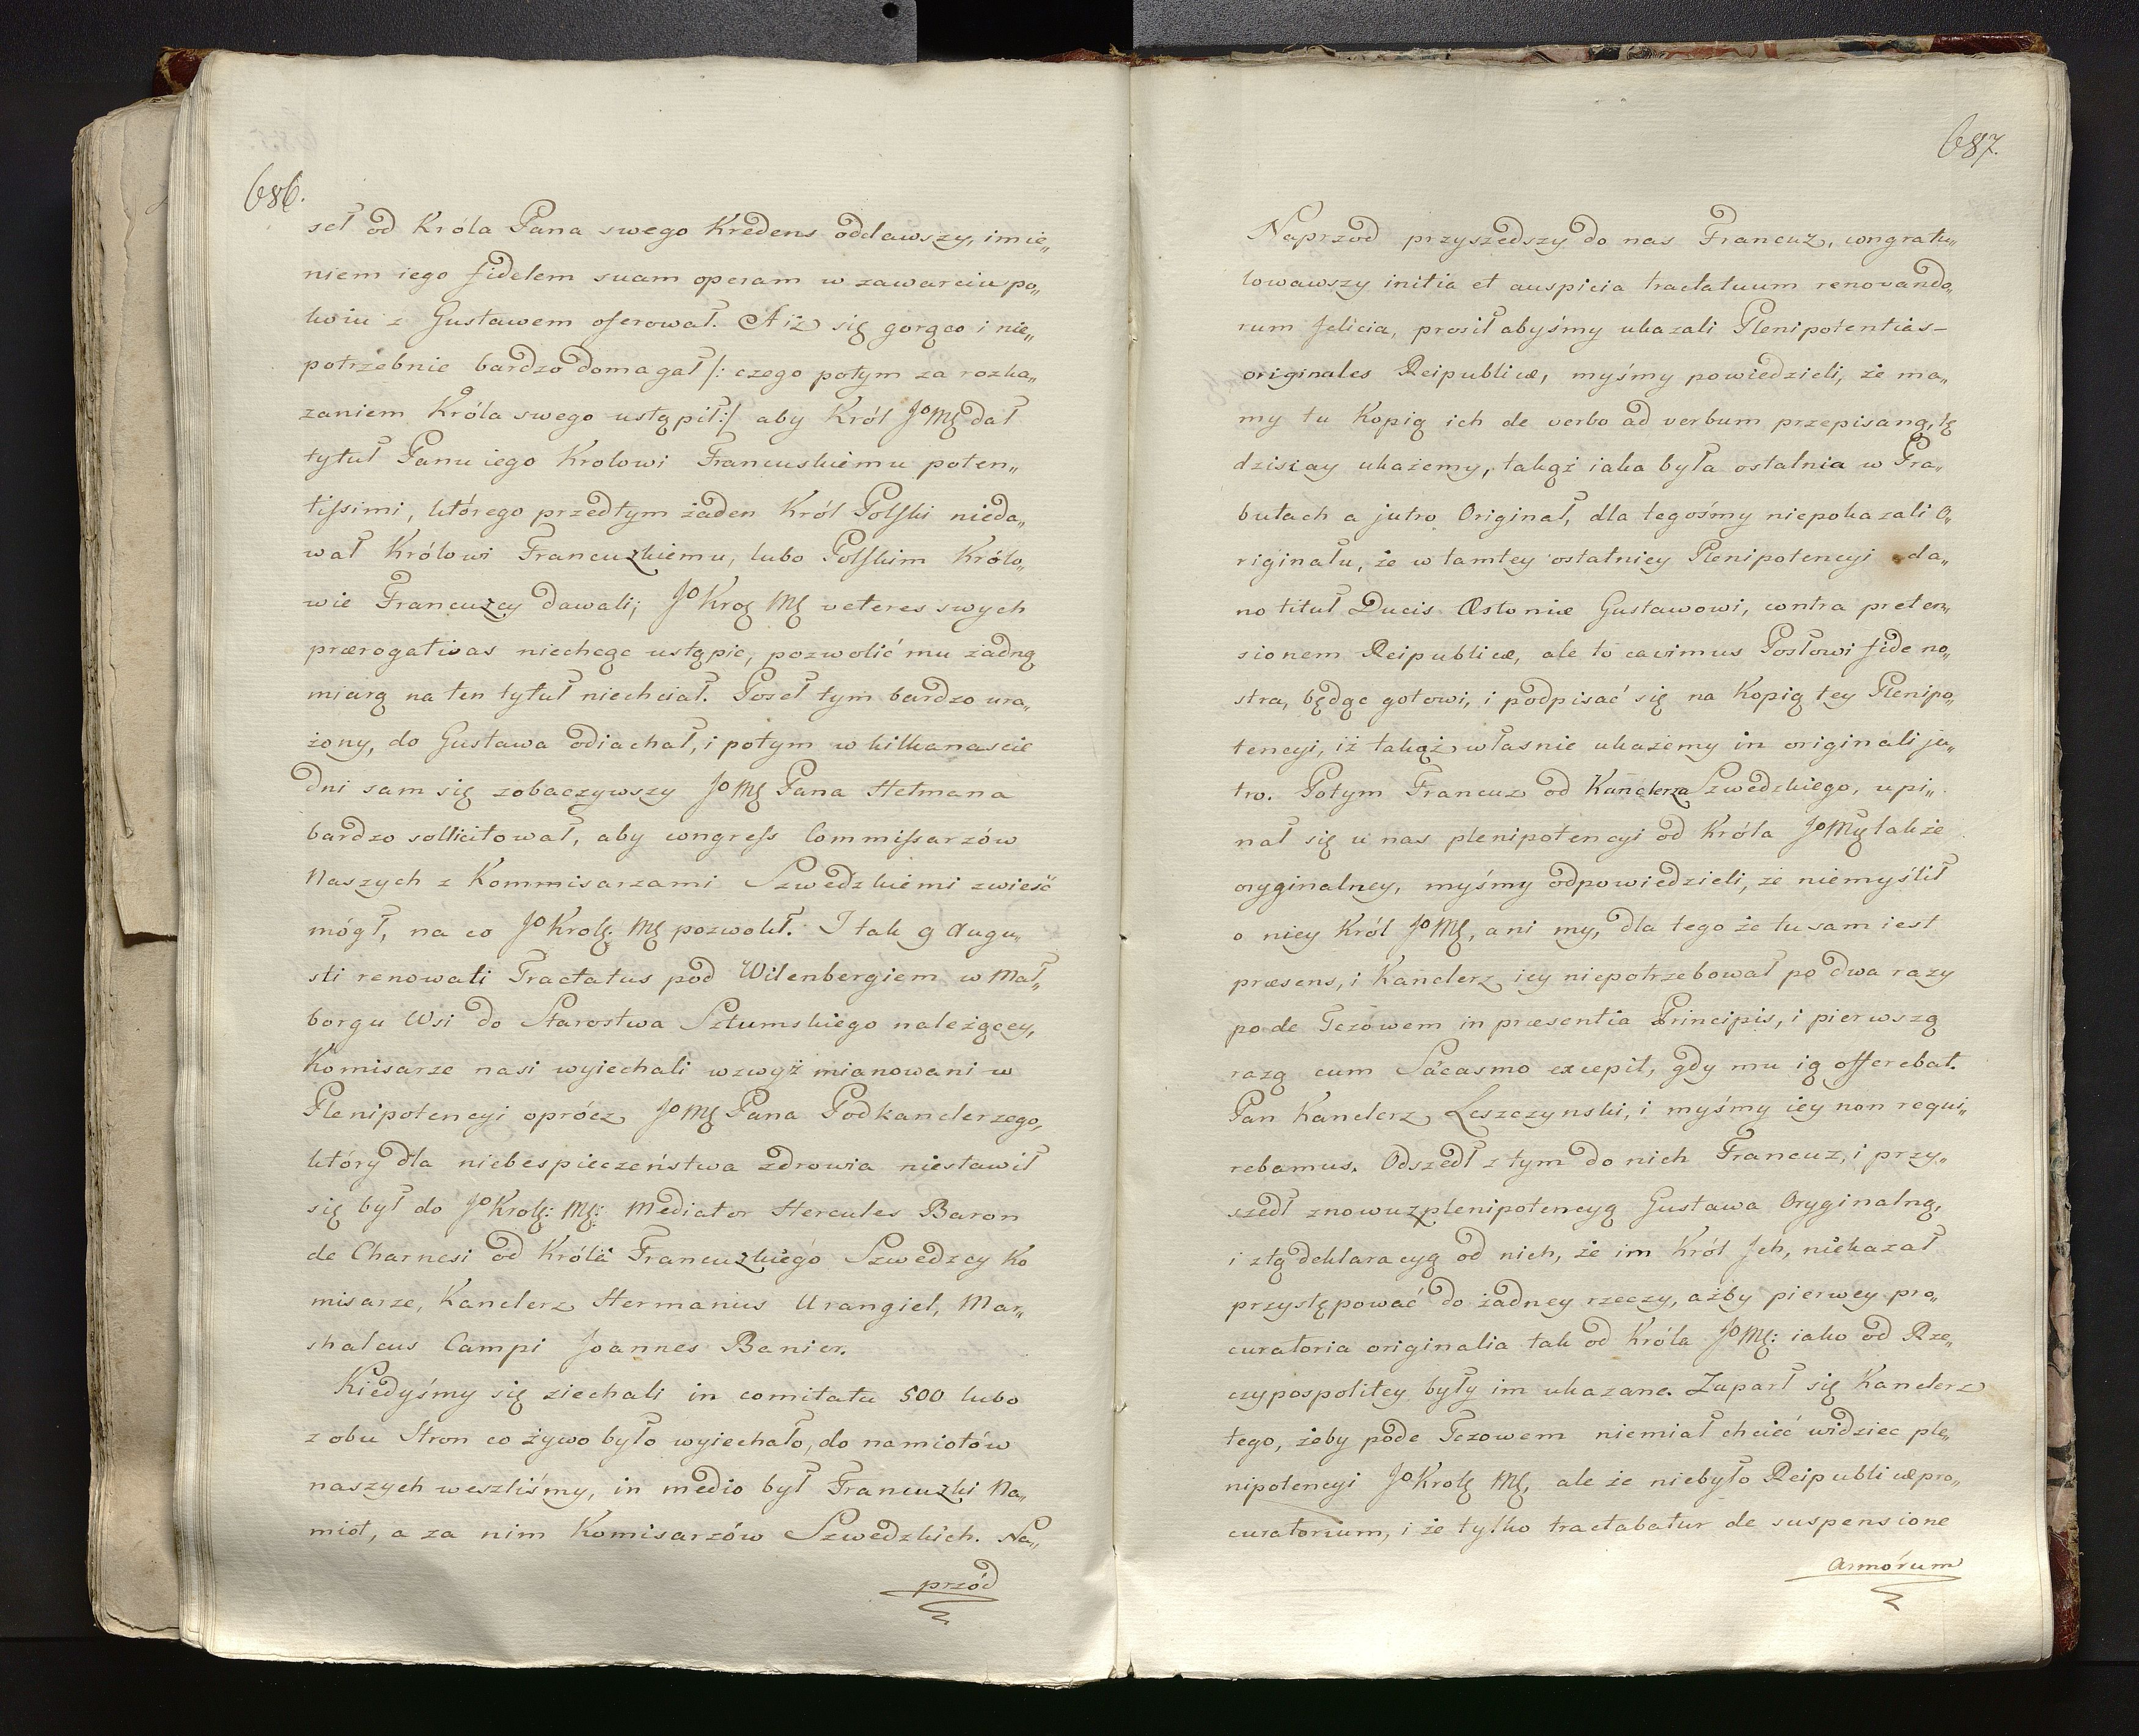 686.
seł od Króla Pana swego Kredens oddawszy, imie„
niem iego fidelem suam operam w zawarciu po„
koiu z Gustawem oferował. A iż się gorąco i nie„
potrzebnie bardzo domagał /: czego potym za rozka„
zaniem Króla swego ustąpił :/ aby Król JoMę dał
tytuł Panu iego Krolowi Francuskiemu poten„
tissimi, którego przedtym żaden Król Polski nieda„
wał Królowi Francuzkiemu, lubo Polskim Królo„
wie Francuzcy dawali; Jo Kroę Mę veteres swych
prærogativas niechcąc ustąpic, pozwolić mu żadną
miarą na ten tytuł niechciał. Poseł tym bardzo ura„
żony, do Gustawa odiachał, i potym w kilkanascie
dni sam się zobaczywszy JoMę Pana Hetmana
bardzo sollicitował, aby congress Commissarzów
Naszych z Kommisarzami Szwedzkiemi zwieść
mógł, na co Jo Krolę: Mę pozwolił. I tak 9 Augu„
sti renowati Tractatus pod Wilenbergiem w Mal„
borgu Wsi do Starostwa Sztumskiego należącey,
Komisarze nasi wyiechali wzwyż mianowani w
Plenipotencyi oprócz JoMę Pana Podkanclerzego,
który dla niebespieczeństwa zdrowia niestawił
się był do Jo Krolę: Mę: Mediator Hercules Baron
de Charnesi od Króla Francuzkiego Szwedzcy Ko
misarze, Kanclerz Hermanius Urangiel, Mar„
shalcus Campi Joannes Banier.
Kiedyśmy się ziechali in comitatu 500 lubo
z obu Stron co żywo było wyiechało, do namiotów
naszych weszliśmy, in medio był Francuzki Na„
miot, a za nim Komisarzów Szwedzkich. Na„
przód
687.
Naprzod przyszedszy do nas Francuz, congratu„
lowawszy initia et auspicia tractatuum renovando„
rum felicia, prosił abyśmy ukazali Plenipotentias-
originales Reipublicæ, myśmy powiedzieli, że ma„
my tu Kopią ich de verbo ad verbum przepisaną, tę
dzisiay ukażemy, takąż iaka była ostatnia w Pra„
butach a jutro Originał, dla tegośmy niepokazali O„
riginału, że w tamtey ostatniey Plenipotencyi da„
no tituł Ducis Æstoniæ Gustawowi, contra preten„
sionem Reipublicæ, ale to cavimus Posłowi fide no„
stra, będąc gotowi, i podpisać się na Kopią tey Plenipo„
tencyi, iż takąż własnie ukażemy in originali ju„
tro. Potym Francuz od Kanclerza Szwedzkiego, upi„
nał się u nas plenipotencyi od Króla JoMę także
oryginalney, myśmy odpowiedzieli, że niemyślił
o niey Król JoMę, ani my, dla tego że tu sam iest
præsens, i Kanclerz iey niepotrzebował po dwa razy
po de Tczowem in præsentia Principis, i pierwszą
razą cum Sacasmo excepit, gdy mu ią offerebat.
Pan Kanclerz Leszczynski, i myśmy iey non requi„
rebamus. Odszedł z tym do nich Francuz, i przy„
szedł znowu z plenipotencyą Gustawa Oryginalną,
i z tą deklaracyą od nich, że im Król Jch, niekazał
przystępować do żadney rzeczy, ażby pierwey pro„
curatoria originalia tak od Króla JoMę: iako od Rze„
czypospolitey były im ukazane. Zaparł się Kanclerz
tego, żeby pode Tczowem niemiał chcieć widziec ple„
nipotencyi Jo Krolę Mę, ale że niebyło Reipublicæ pro„
curatorium, i że tylko tractabatur de suspensione
Armórum